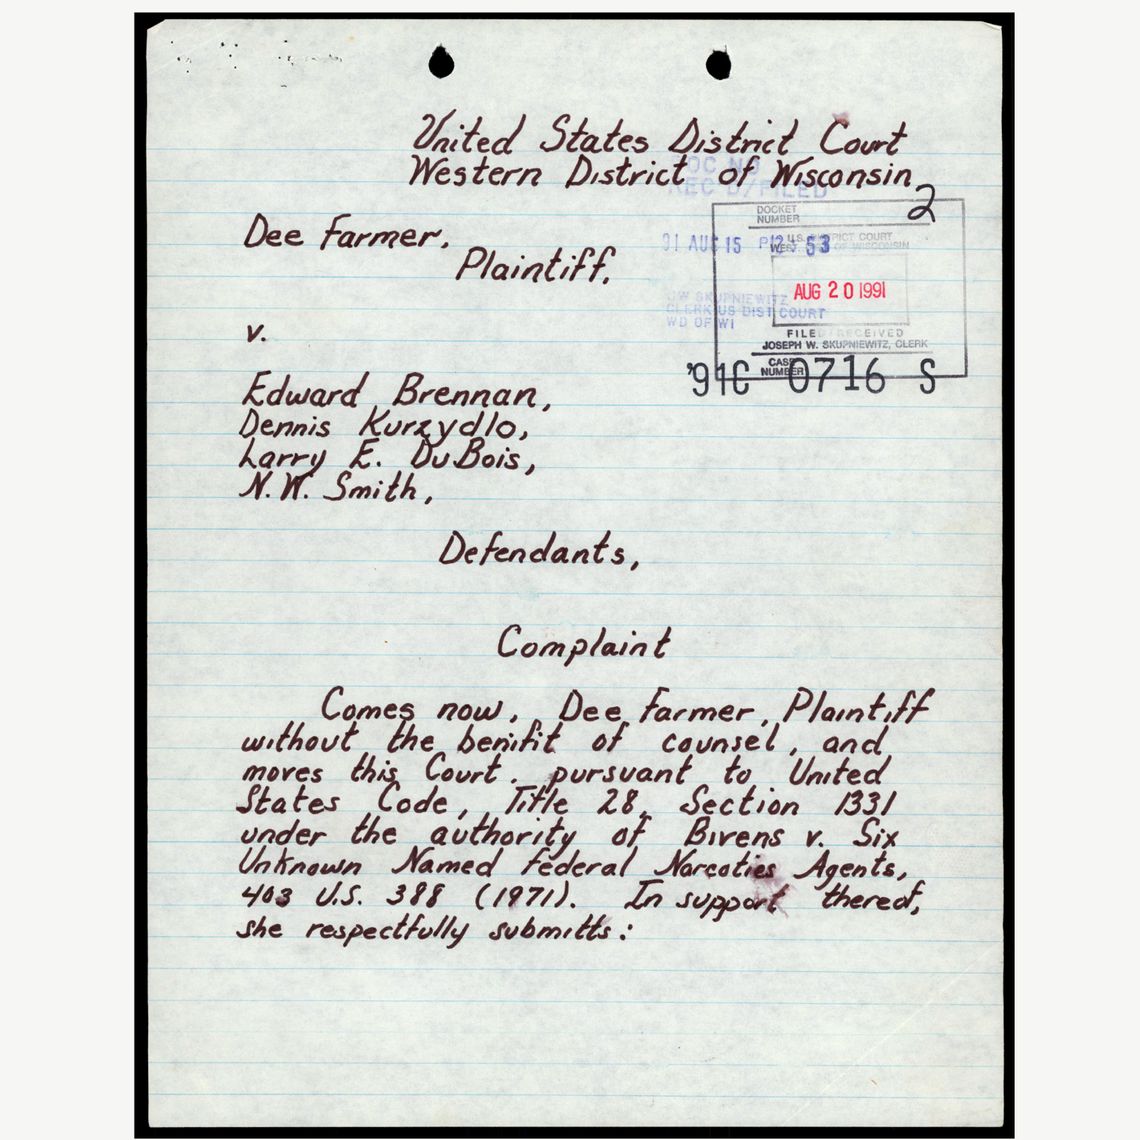 United States District Court
Western District of Wisconsin
DOC NO
REC'D/FILED
2
DOCKET
NUMBER
Dee Farmer,
91 AUG 15 P12:53
U.S. DISTRICT COURT
WEST. OF WISCONSIN
Plaintiff,
AUG 20 1991
JW SKUPNIEWITZ
CLERK US DIST COURT
WD OF WI
v.
FILED/RECEIVED
JOSEPH W. SKUPNIEWITZ, CLERK
CASE
NUMBER
'91C 0716 S
Edward Brennan,
Dennis Kurzydlo,
Larry E. DuBois,
N.W. Smith,
Defendants,
Complaint
Comes now, Dee Farmer, Plaintiff
without the benifit of counsel, and
moves this Court, pursuant to United
States Code, Title 28, Section 1331
under the authority of Bivens v. Six
Unknown Named Federal Narcoties Agents,
403 U.S. 388 (1971). In support thereof,
she respectfully submitts: